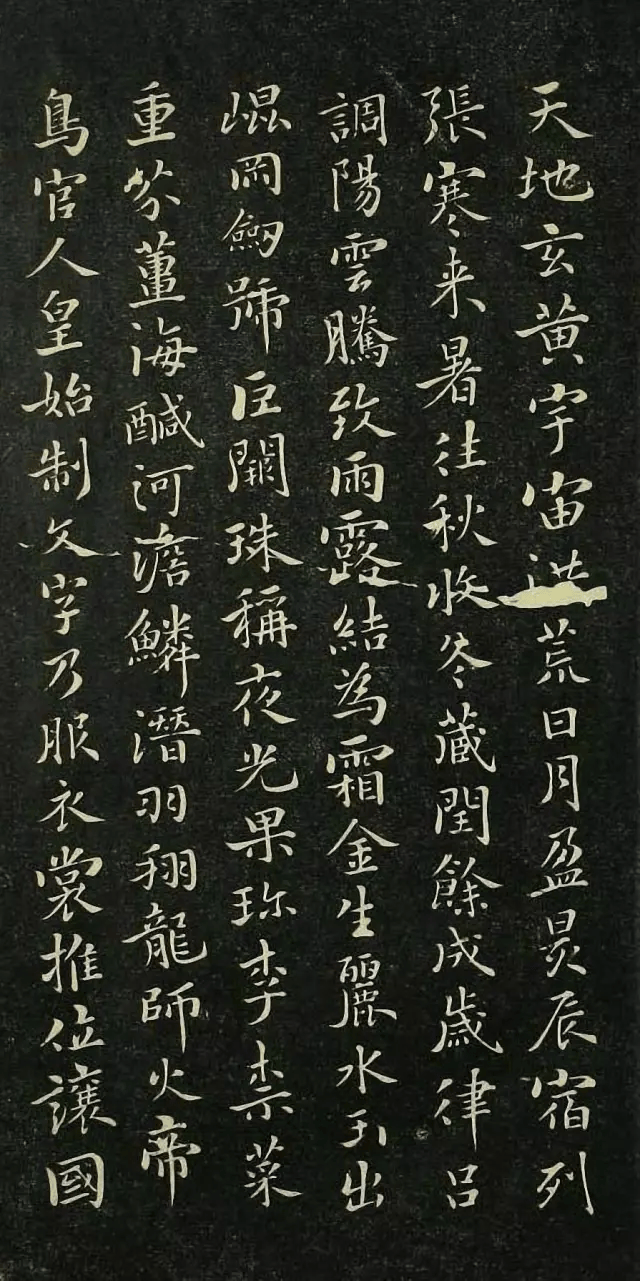 天地玄黄宇宙洪荒日月盈昃辰宿列
張寒来暑往秋收冬藏閏餘成歲律吕
調陽雲騰致雨露結為霜金生麗水玉出
崐岡劔號巨闕珠稱夜光果珎李柰菜
重芥薑海醎河澹鱗潛羽翔龍師火帝
鳥官人皇始制文字乃服衣裳推位讓國